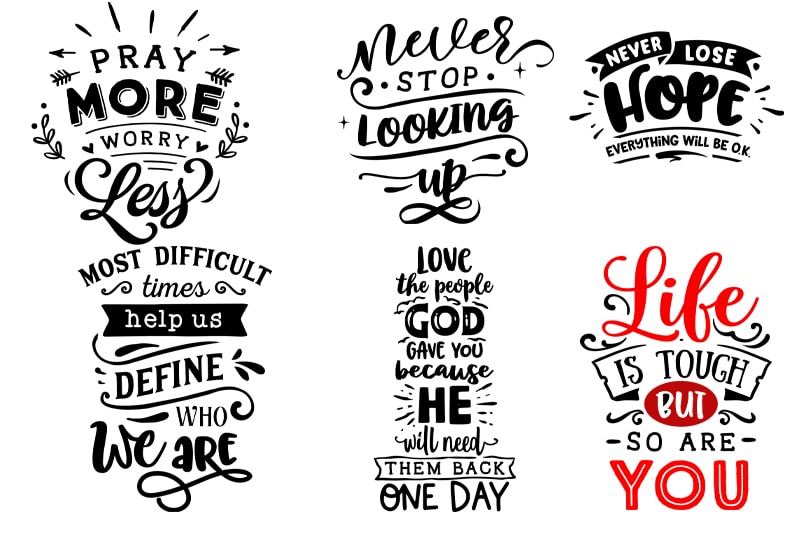 PRAY
MORE
WORRY
Less
Never
STOP
LOOKING
up
NEVER LOSE
HOPE
EVERYTHING WILL BE O.K.
MOST DIFFICULT
times
help us
DEFINE
WHO
We ARE
LOVE
the people
GOD
GAVE YOU
because
HE
will need
THEM BACK
ONE DAY
Life
IS TOUGH
BUT
SO ARE
YOU